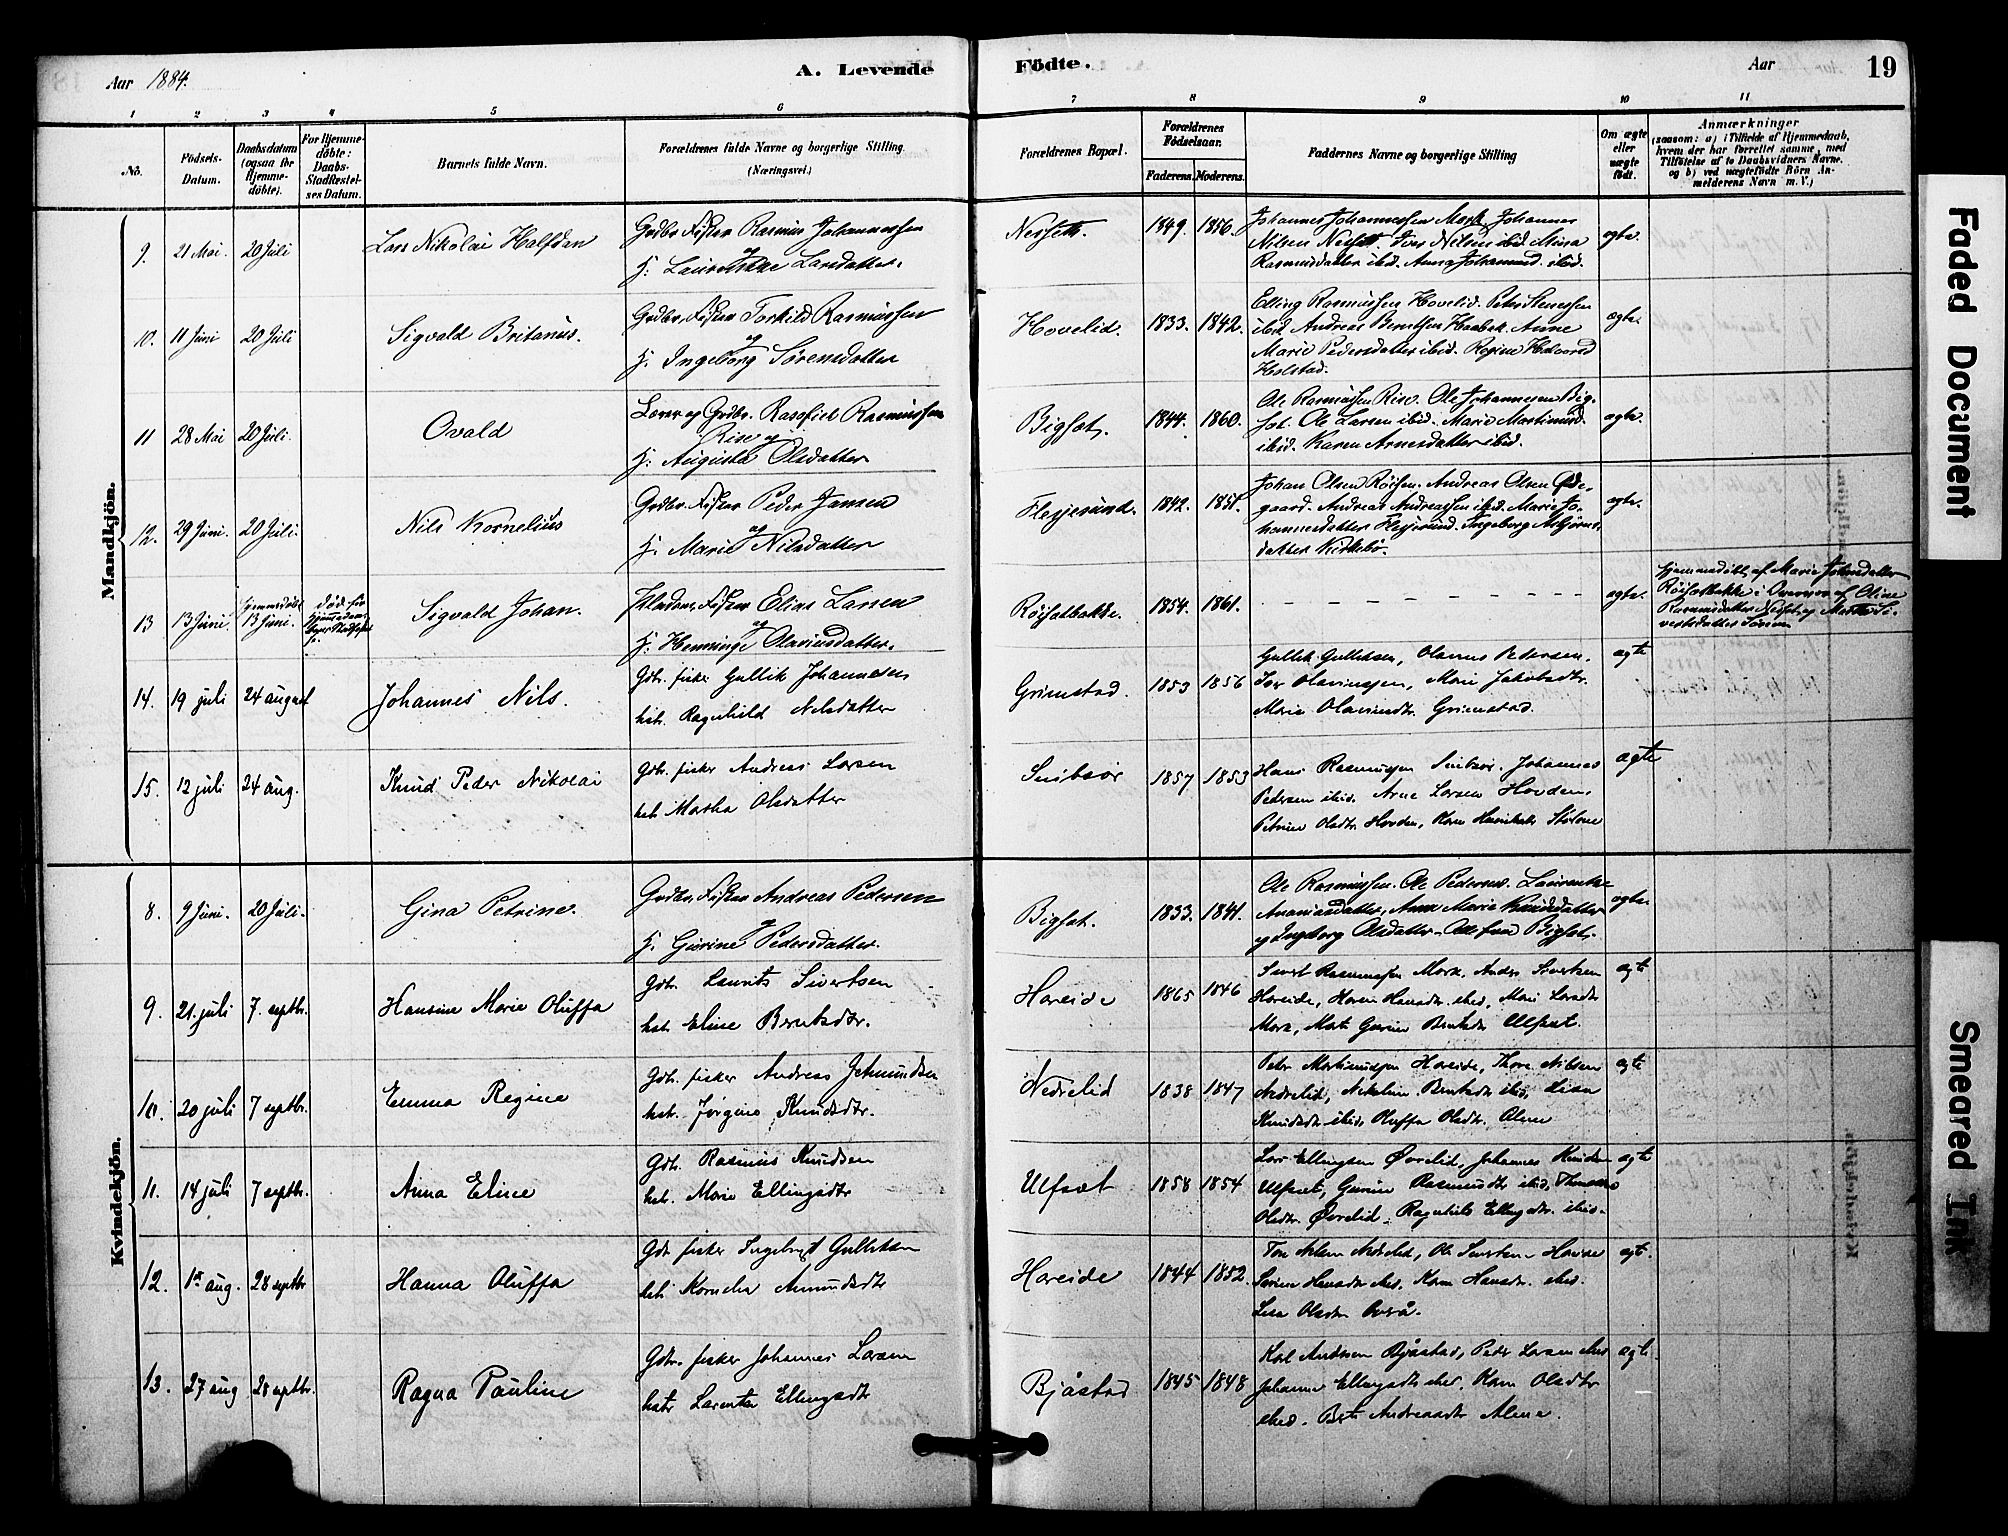 Aar 1884.
A. Levende
Födte.
Aar
19
1 2 3 4 5 6 7 8 9 10 11
No.
Födsels-Datum.
Daabsdatum (ogsaa for Hjemmedöbte).
For Hjemmedöbte: Daabs-Stadfæstelses Datum.
Barnets fulde Navn.
Forældrenes fulde Navne og borgerlige Stilling.
(Næringsvei.)
Forældrenes Bopæl.
Forældrenes Födselsaar.
Faderens. Moderens.
Faddernes Navne og borgerlige Stilling
Om ægte eller uægte födt.
Anmærkninger
(saasom: a) i Tilfælde af Hjemmedaab, hvem der har forrettet samme, med Tilföielse af to Daabsvidners Navne. og b) ved uægtefödte Börn Anmelderens Navn m. V.)
Mandkjön.
9. 21 Mai. 20 Juli Lars Nikolai Halfdan
Grdbr. Fisker Rasmus Johannessen
og
H: Laurentze Larsdatter.
Nessett. 1849. 1856.
Johannes Johannessen Mork Johannes
Nilsen Nessett. Iver Nilsen ibid. Mina
Rasmusdatter ibid. Anna Johannesd. ibid.
ægte.
10. 11 Juni 20 Juli Sigvald Britanus.
Grdbr. Fisker Torkild Rasmussen
og
H. Ingeborg Sörensdatter
Hovelid. 1833. 1842.
Elling Rasmussen Hovelid. Peter
ibid. Andreas Berntsen Anne
Marie Pedersdatter ibid. Regine
ægte.
11 28 Mai 20 Juli. Ovald
Lærer og Grdbr. Rasmussen
Rise og
H. Augusta Olsdatter
Bigset. 1844. 1860.
Ole Rasmussen Rise. Ole Johannessen Big-
set. Ole Larsen ibid. Marie
ibid. Karen Arnesdatter ibid.
ægte.
12. 29 Juni. 20 Juli. Nils Kornelius
Grdbr. Fisker Peder Jansen
og
H. Marie Nilsdatter
Flesjesund. 1842. 1851.
Johan Olsen Röisen. Andreas Olsen Öde-
gaard. Andreas Andreassen ibid. Marie Jo-
hannesdatter Flesjesund. Ingeborg
datter Kirkebö.
ægte.
13 13 Juni. Hjemmedöbt 13 Juni. Sigvald Johan.
Fisker Elias Larsen
og
H. Henninge Olariusdatter.
Röisetbakke. 1854. 1861.
ægte.
Hjemmedöbt af Marie Johnsdatter
Röisetbakke i Overvær af Oline
Rasmusdatter
14. 19 juli 24 august Johannes Nils.
Gbr. fisker Gullik Johannesen
hst. Ragnhild Nilsdatter
Grimstad. 1853 1856
Gullik Gulliksen, Olaus Pedersen.
Olavussen, Mari Jakobsdtr.
Marie Grimstad.
ægte
15. 12 juli 24 aug. Knud Peder Nikolai
Gbr. fisker Andreas Larsen
hst. Martha Olsdatter
1857 1853
Hans Rasmussen Johannes
Pedersen ibid. Arne Larsen Hovden,
Petrine Olsdtr Hovden,
ægte
Kvindekjön.
8. 9 Juni. 20 Juli. Gina Petrine.
Grdbr. Fisker Andreas Pedersen
og
H. Gurine Pedersdatter.
Bigset. 1833. 1841.
Ole Rasmussen. Ole Pedersen. Laurentze
Ananiasdatter, Anne Marie Knudsdatter
og Ingeborg Olsdatter. Alle fra Bigset.
ægte.
9. 21. juli 7. septbr. Hansine Marie Oluffa
Gbr. Laurits Sivertsen
hst. Eline Berntsdtr.
Hareide 1865 1846
Sivert Rasmussen Mork. Andrs Sivertsen
Hareide, Hansdtr. ibid, Mari Larsdtr
Mork, Gurine Berntsdtr Ulfset.
ægte
10. 20 juli 7 septbr. Emma Regine
Gbr. fisker Andreas Jetmundsen
hst. Jørgine Knudsdtr.
Nedrelid 1838 1847
Peter Martinussen Hareide, Thore Nilsen
Nedrelid, Nikoline Berntsdtr ibid, Lisa
Knudsdtr ibid, Oluffa Olsdtr.
ægte
11. 14 juli 7 septbr. Anna Eline
Gbr. Rasmus Knudsen
hst. Marie Ellingsdtr
Ulfset 1858 1854
Lars Ellingsen Øvrelid, Johannes Knudsen
Ulfset, Gurine Rasmusdtr ibid,
Olsdtr. Øvrelid. Ragnhild Ellingsdtr. ibid.
ægte
12. 1st aug. 28 septbr Hanna Oluffa
Gbr fisker Ingebrigt Gulliksen
hst. Kornelia Amundsdtr
Hareide 1844 1852.
Ole Sivertsen Hareide
Hansdtr ibid. Karen Hansdtr. ibid.
Lisa Olsdtr
ægt.
13. 27 aug 28 septbr. Ragna Pauline
Gbr. fisker Johannes Larsen
hstr Larentse Ellingsdtr
Bjåstad 1845 1848
Karl Andersen Bjåstad, Peder Larsen ibid
Johanne Ellingsdtr ibid. Karen Olsdtr
ibid. Andreasdtr
ægte.
Faded Document
Smeared Ink